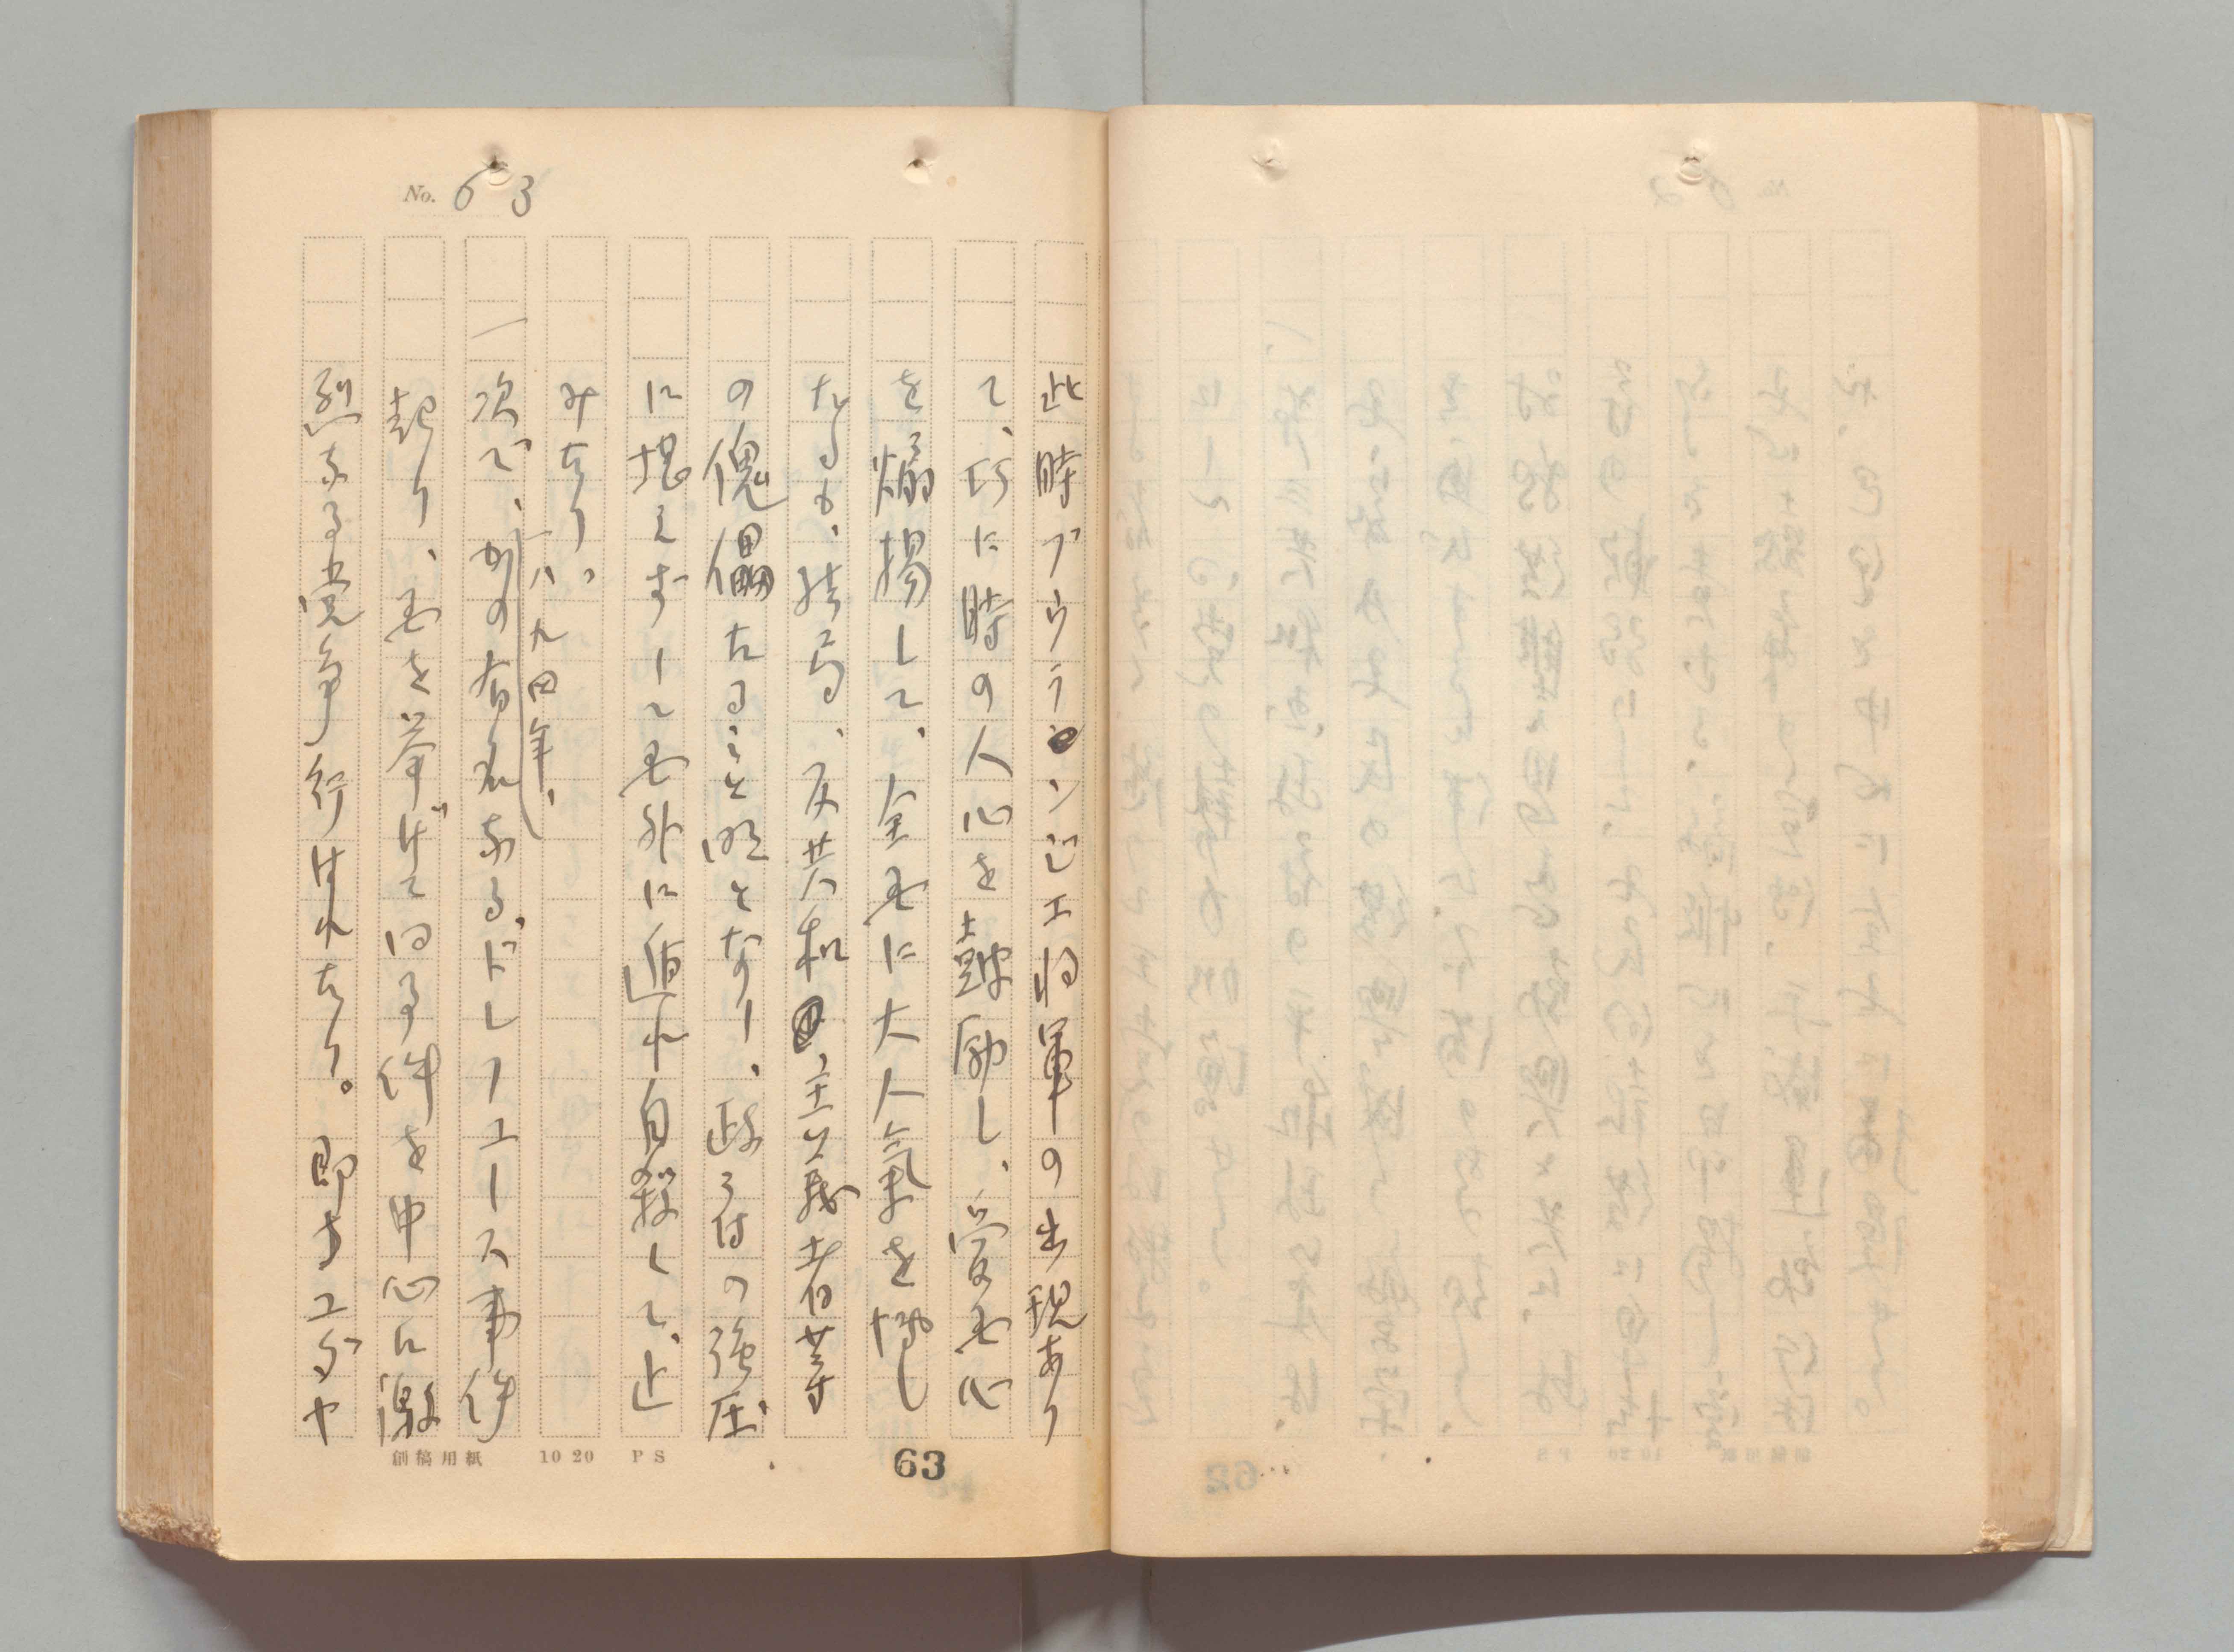 No. 63
此時ブウランジエ将軍の出現あり
て、巧に時の人心を鼓励し、愛国心
を煽揚して、全国に大人氣を博し
たるも、結局、反共和主義者等
の傀儡たること明となり、政府の強圧
に堪えずして国外に遁れ自殺して、止
みたり。
次で、一八九四年、かの有名なる、ドレフユース事件
起り、国を挙げて因る件を中心に激
烈なる党争行はれたり。即ちユダヤ
創稿用紙 10 20 PS
63